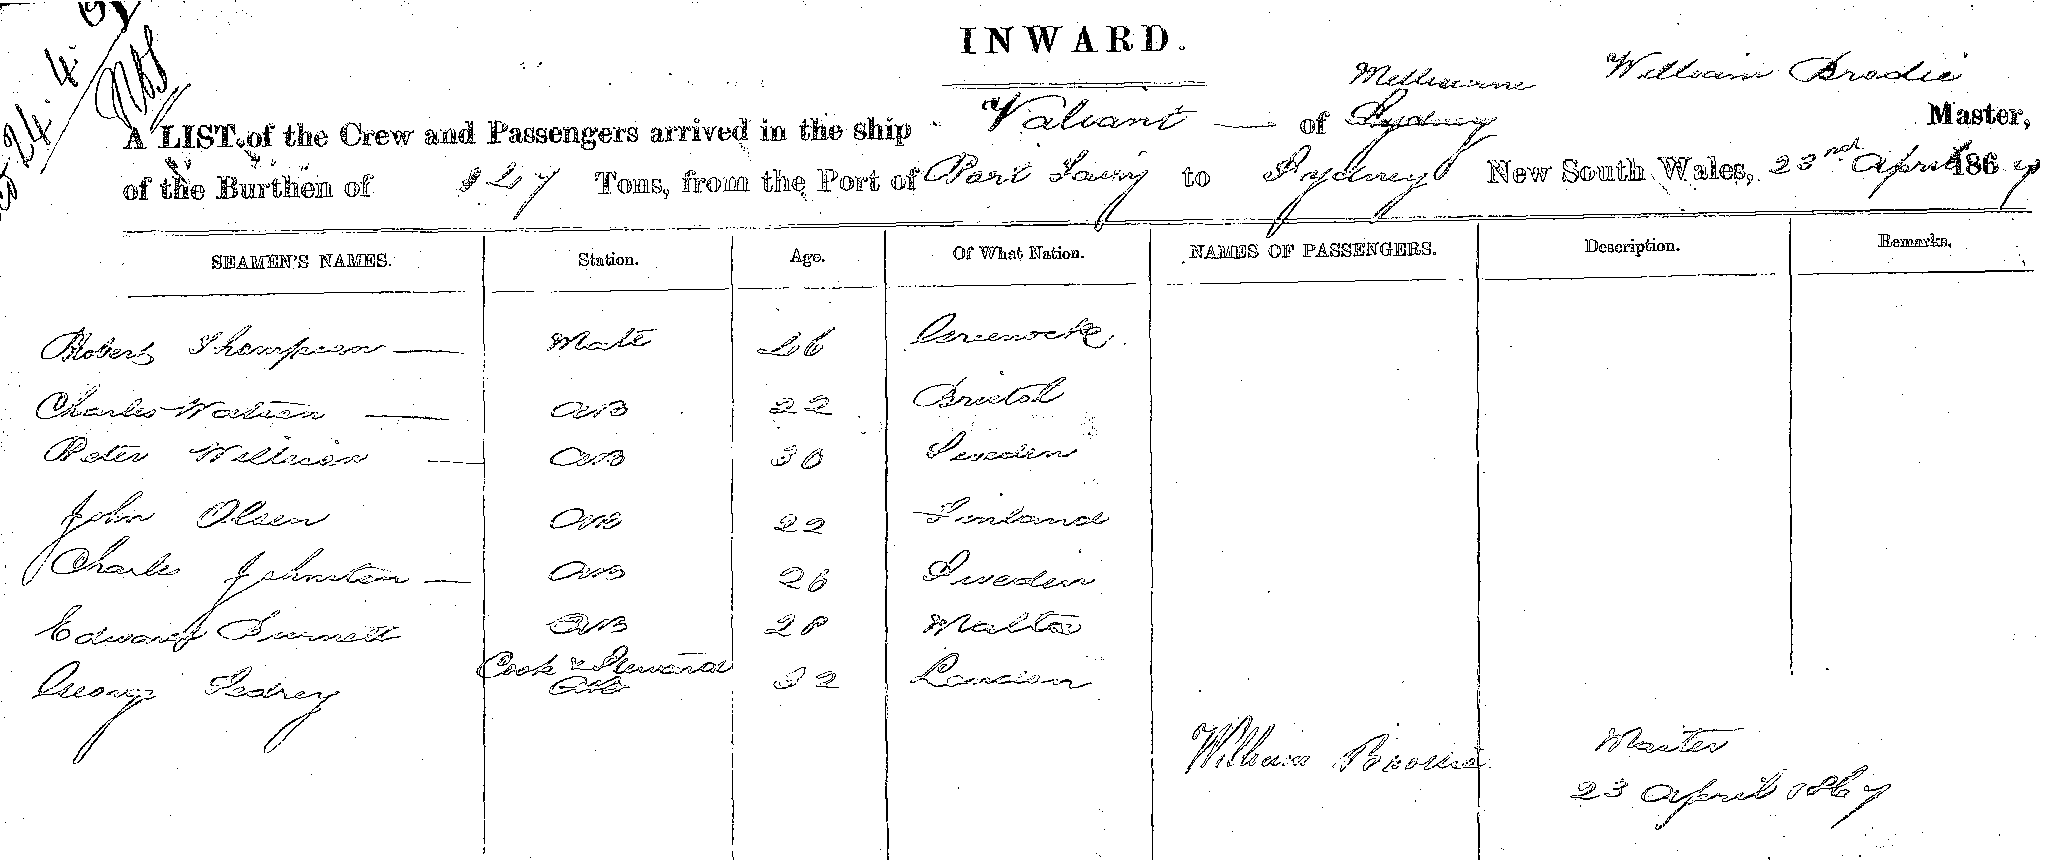 INWARD.
24.4.67
Melbourne William Brodie
A LIST of the Crew and Passengers arrived in the ship Valiant — of Sydney Master,
of the Burthen of 127 Tons, from the Port of Port Fairy to Sydney New South Wales, 23rd April 1867
SEAMEN'S NAMES. Station. Age. Of What Nation. NAMES OF PASSENGERS. Description. Remarks.
Robert Thompson — Mate 26 Greenock
Charles Watson — AB 22 Bristol
Peter Willison — AB 30 Sweden
John Olsen AB 22 Finland
Charles Johnston — AB 26 Sweden
Edward Burnett AB 28 Malta
Cook & Steward
George AB 32 London
William Master
23 April 1867